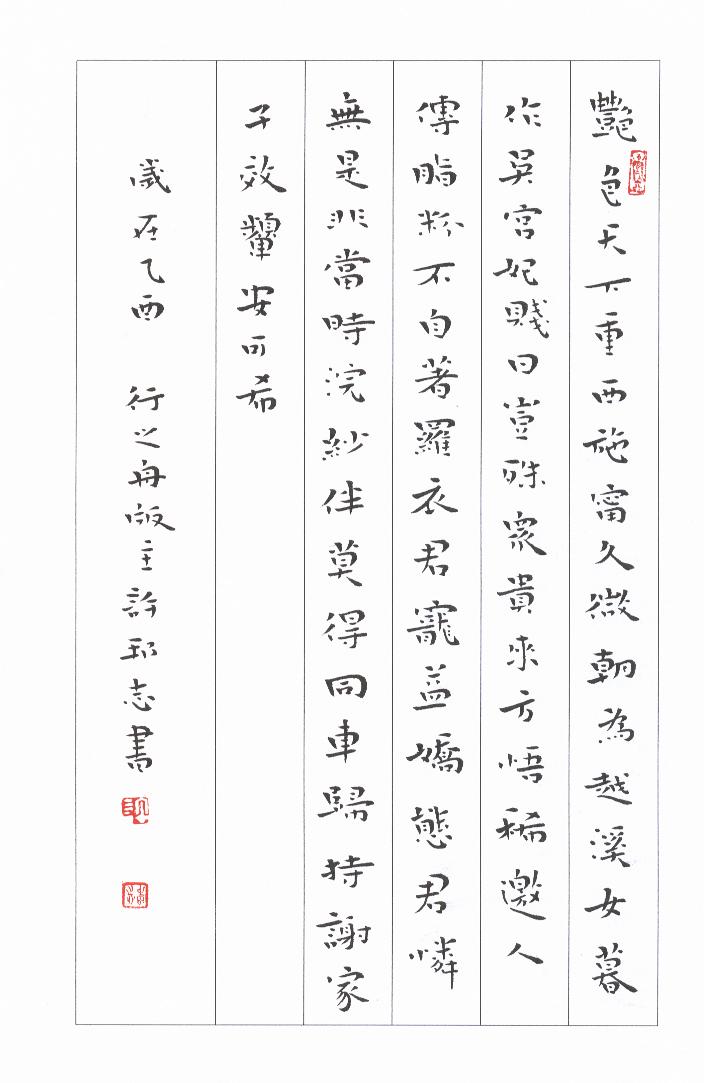 艷色天下重西施甯久微朝為越溪女暮
作吳宮妃賤日豈殊眾貴來方悟稀邀人
傅脂粉不自著羅衣君寵益嬌態君憐
無是非當時浣紗伴莫得同車歸持謝家
子效顰安可希
歲在乙酉 行之舟版主許志書